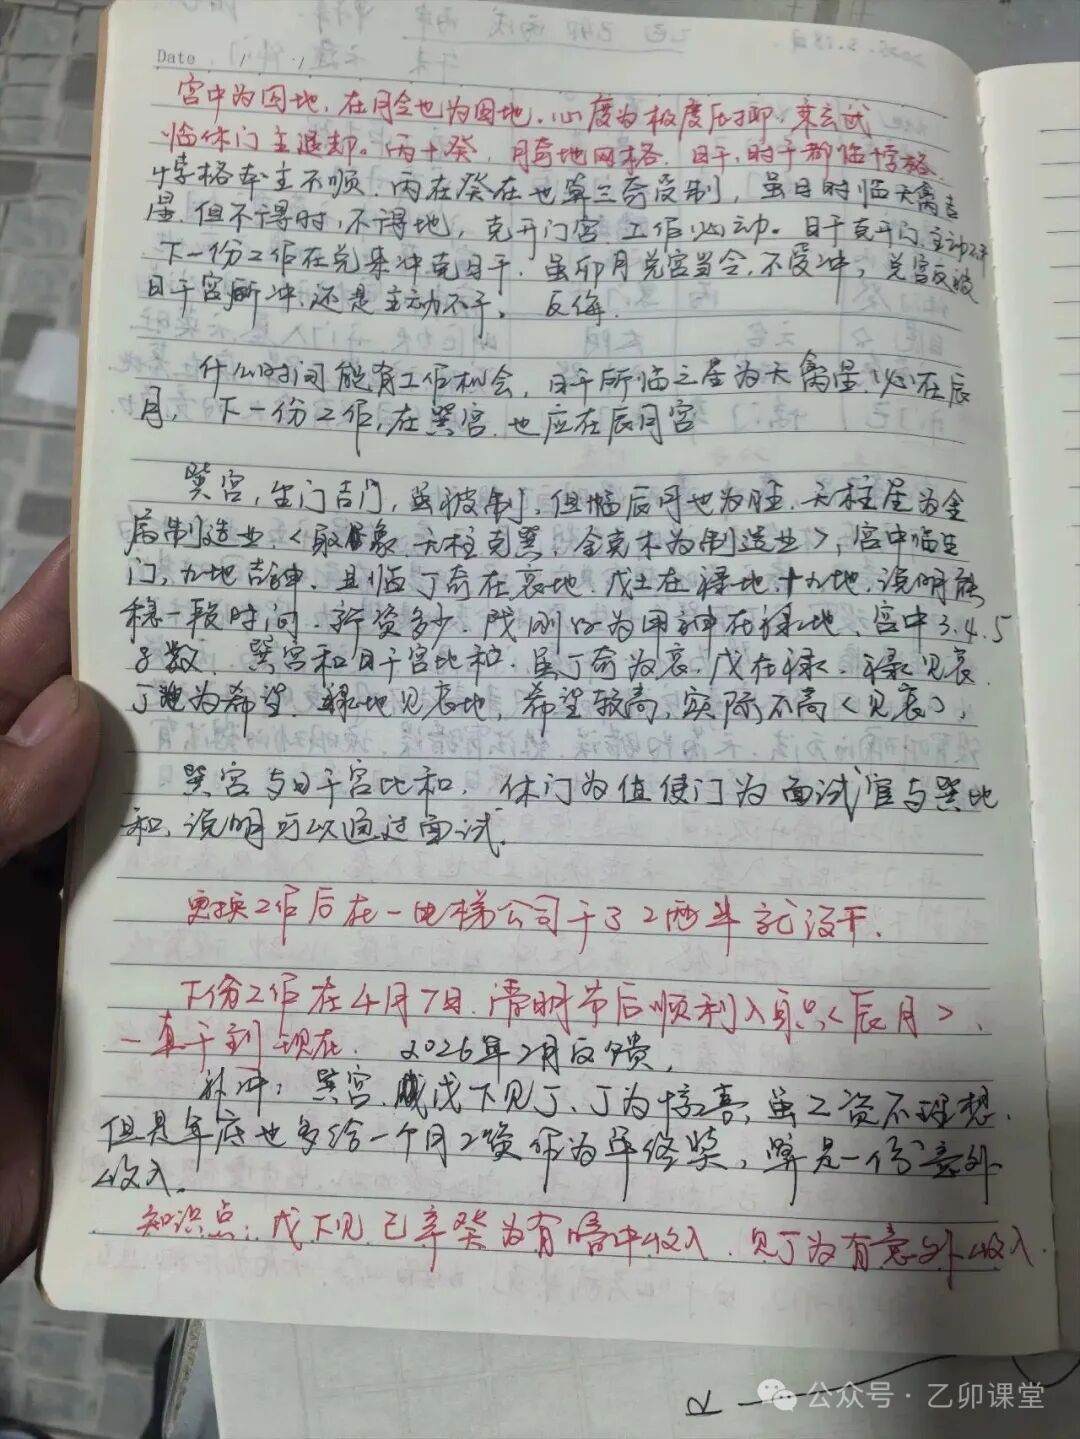 Date / /
宫中为囚地,在月令也为囚地,心度为极度压抑,乘玄武
临休门主退却。丙+癸,月奇地网格,日干,时干都临悖格
悖格本主不顺,丙在癸在也算三奇受制,虽日时临天禽吉
星,但不得时,不得地,克开门宫,工作必动。日干克开门,主动不干
下一份工作在兑来冲克日干,虽卯月兑宫当令,不受冲,兑宫反被
日干宫所冲,还是主动不干, 反悔.
什么时间能有工作机会,日干所临之星为天禽星,必在辰
月,下一份工作,在巽宫,也应在辰月宫
巽宫,生门吉门,虽被制,但临辰月也为旺,天柱星为金
属制造业,<取象,天柱克巽,金克木为制造业>,宫中临生
门,九地吉神,且临丁奇在衰地,戊土在禄地,十九地,说明能
稳一段时间,薪资多少,戊刚好为用神在禄地,宫中3.4.5
8数,巽宫和日干宫比和,虽丁奇为衰,戊在禄,禄见衰,
丁为希望,禄地见衰地,希望较高,实际不高<见衰>,
巽宫与日干宫比和,休门为值使门为面试官与巽比
和,说明可以通过面试.
更换工作后在一电梯公司干了2两半就没干.
下份工作在4月7日,清明节后顺利入职<辰月>,
一直干到现在. 2026年2月反馈,
补冲:巽宫,戊下见丁,丁为惊喜,虽工资不理想,
但是年底也多给一个月工资作为年终奖,算是一份意外
收入.
知识点:戊下见己辛癸为有暗中收入,见丁为有意外收入.
R
公众号·乙卯课堂